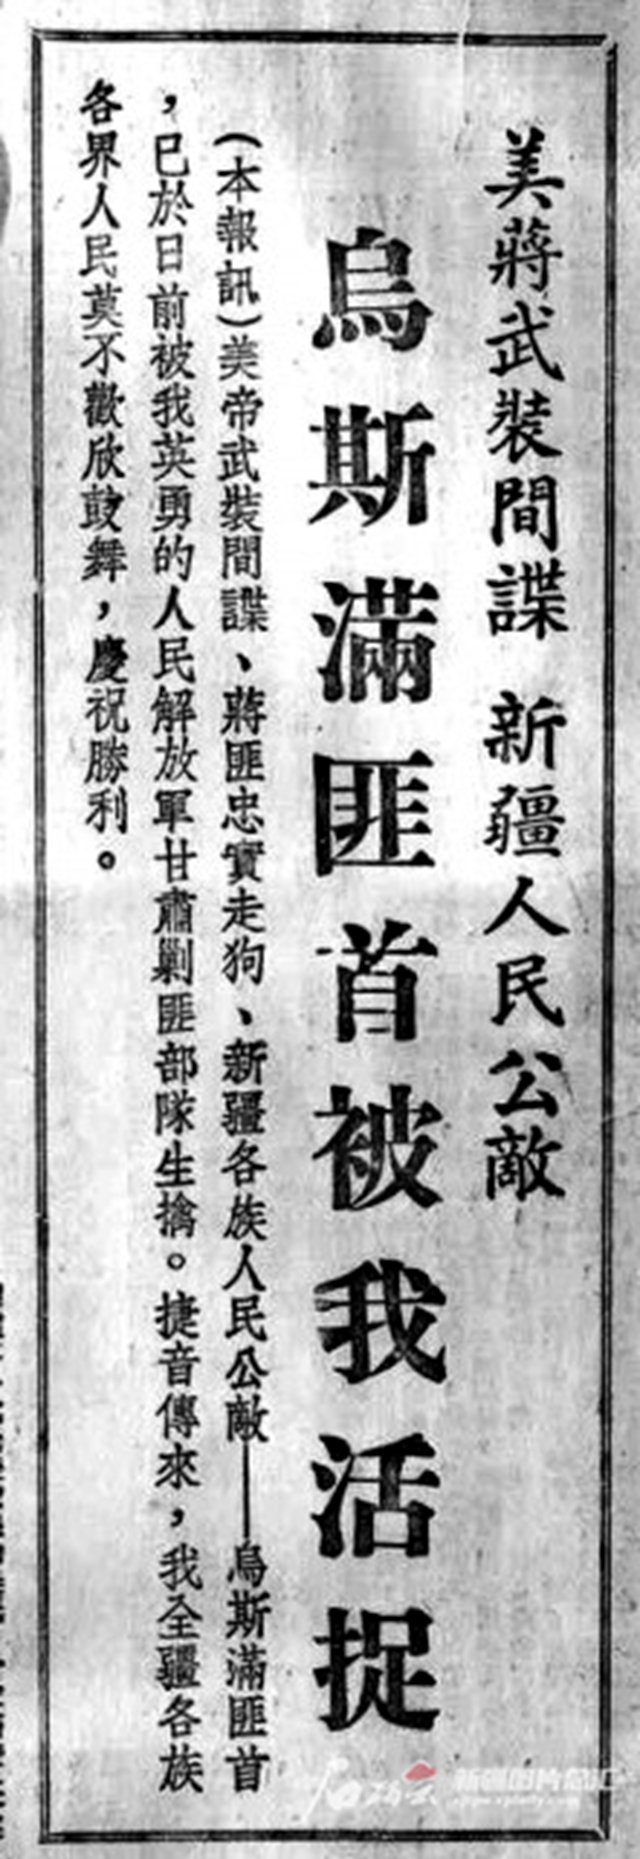 美蔣武裝間諜 新疆人民公敵
烏斯滿匪首被我活捉
(本報訊)美帝武裝間諜、蔣匪忠實走狗、新疆各族人民公敵——烏斯滿匪首
，已於日前被我英勇的人民解放軍甘肅剿匪部隊生擒。捷音傳來，我全疆各族
各界人民莫不歡欣鼓舞，慶祝勝利。